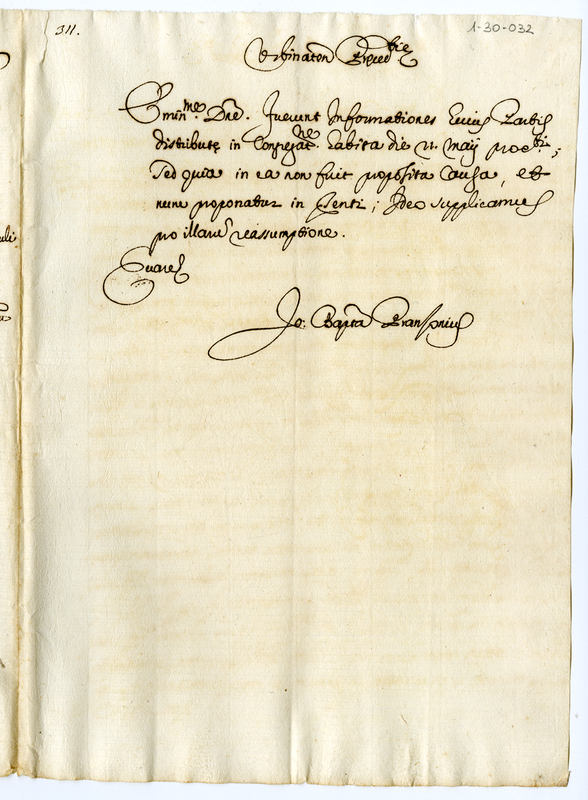 311.
1-30-032
Urbinaten Preced.tie
Emin.me Dne. Fuerunt Informationes huius Partis
distributę in Congregat.ne habita die 21. maij proc.ti;
sed quia in ea non fuit proposita Causa, et
nunc proponatur in p̄senti; Ideo supplicamus
pro illarum reassumptione.
Quare
Jo: Bapta